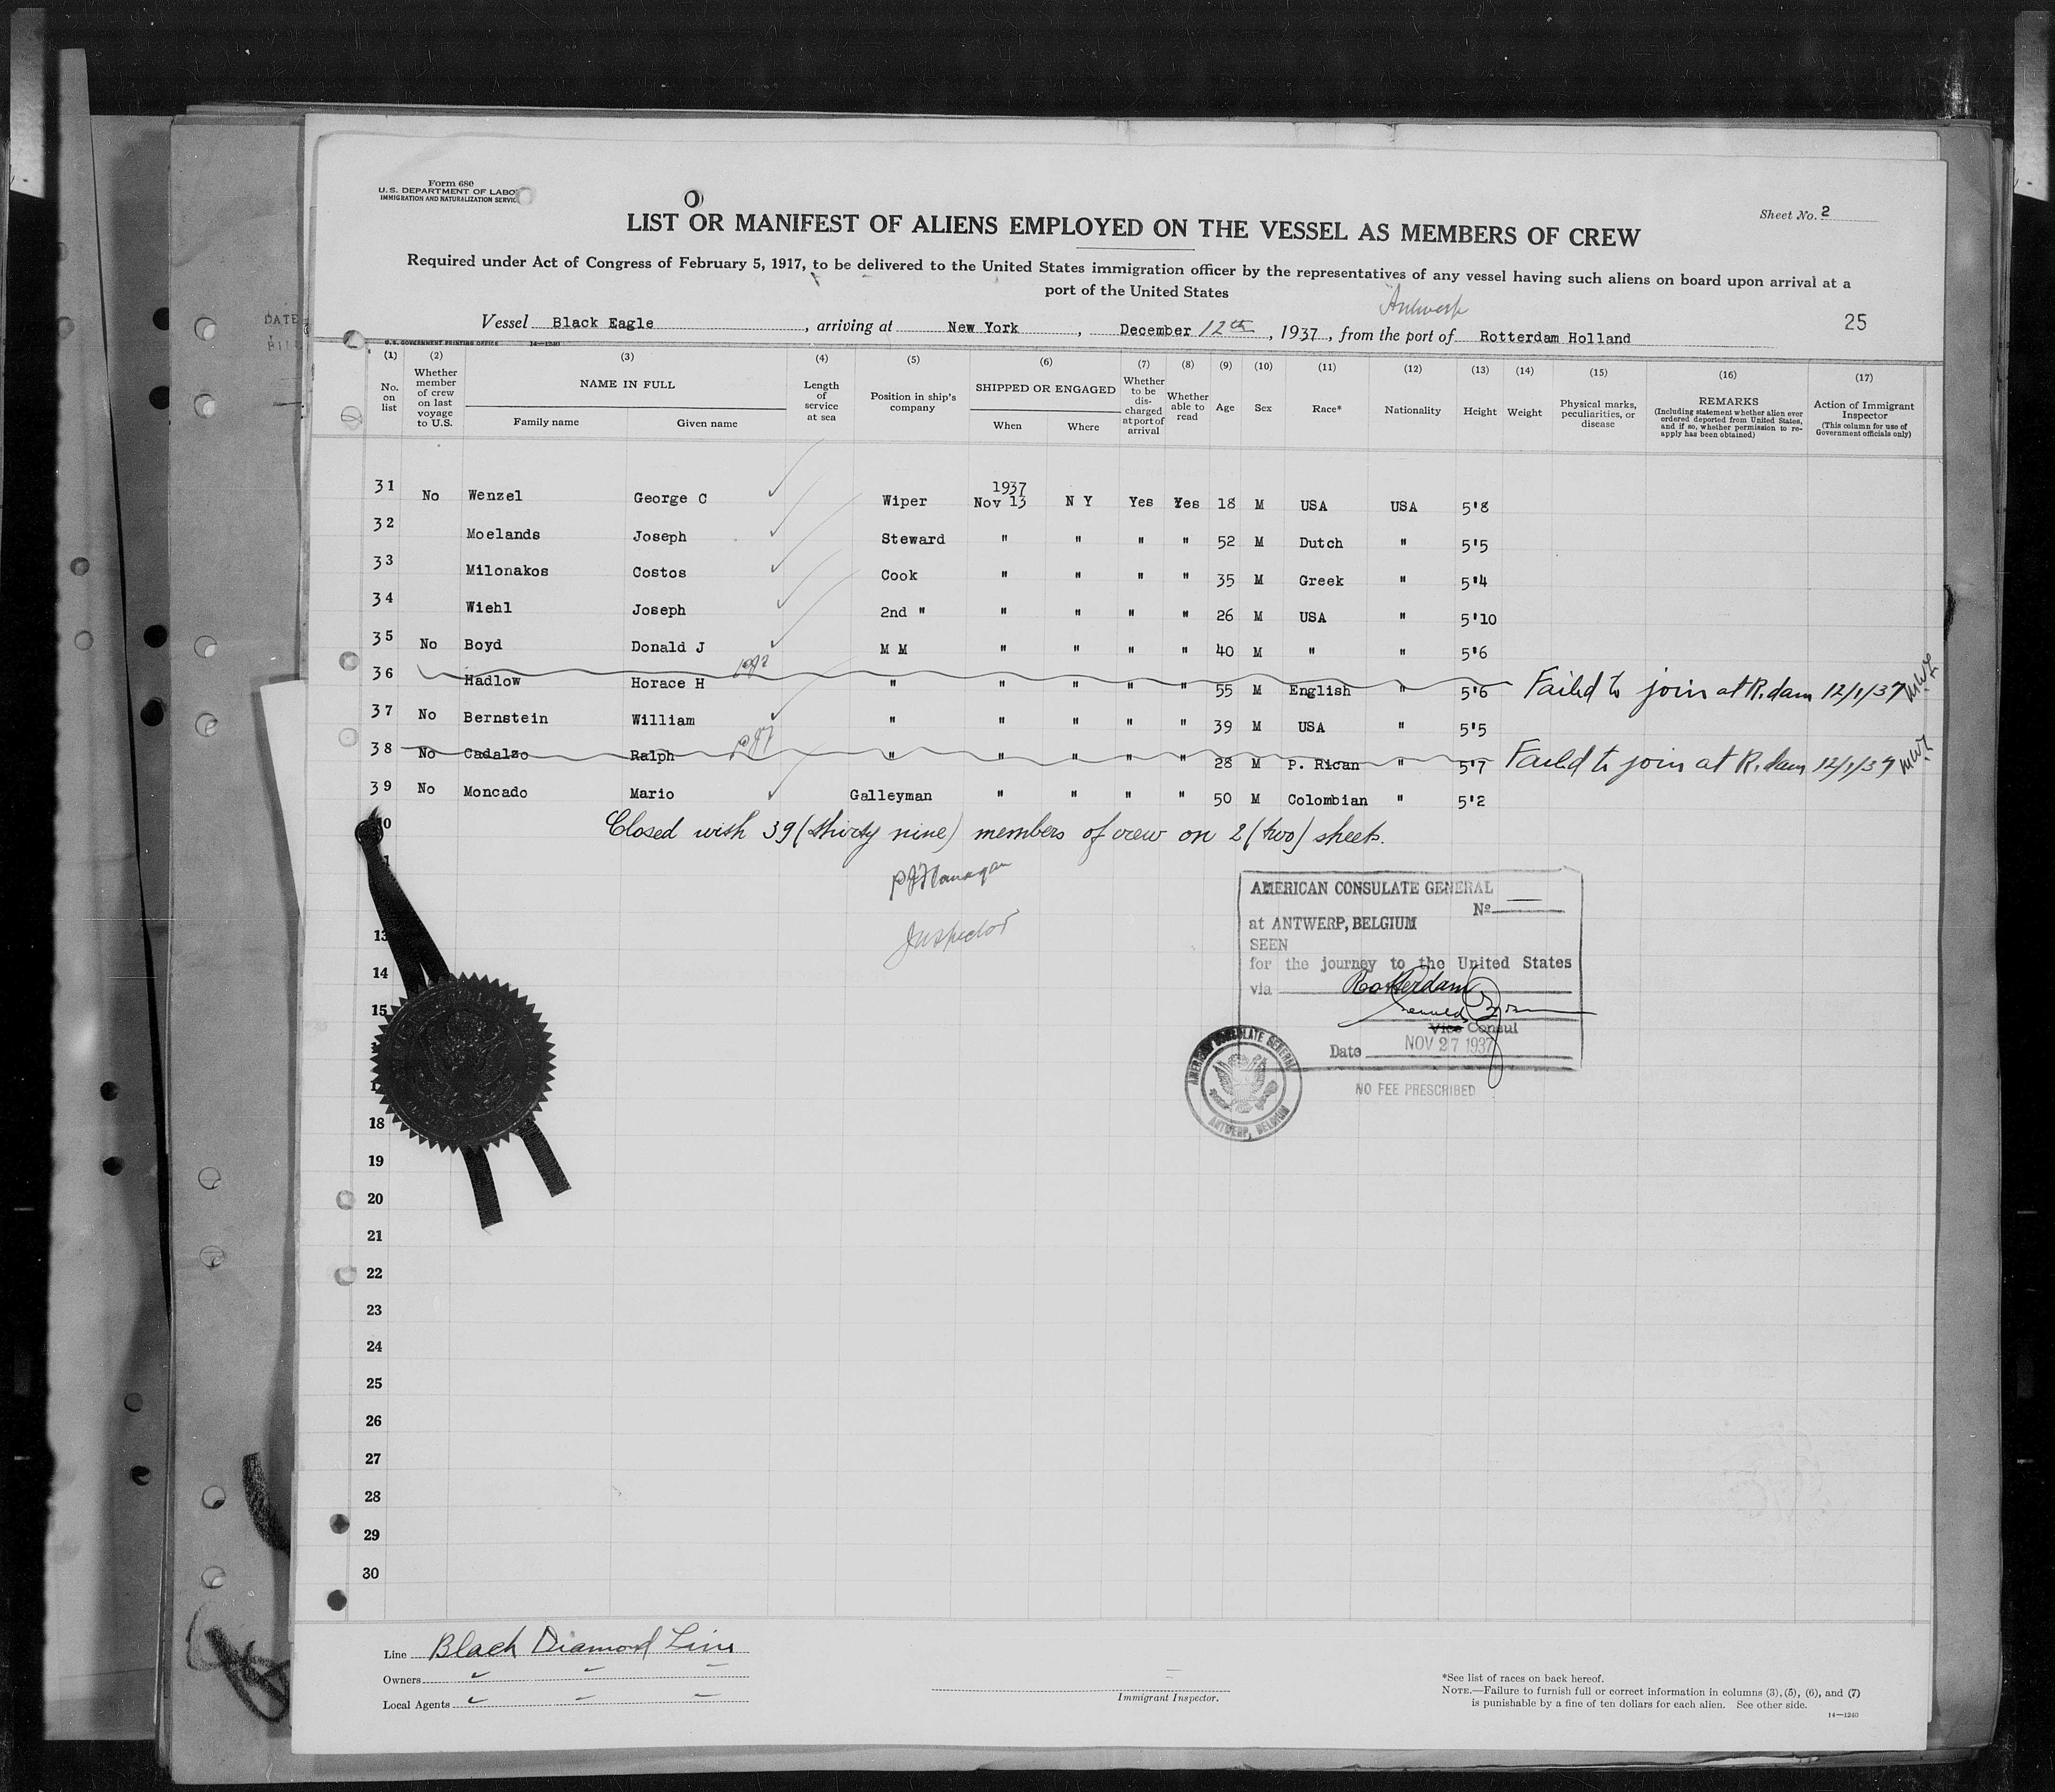 Form 680
U.S. DEPARTMENT OF LABO
IMMIGRATION AND NATURALIZATION SERVIC
Sheet No. 2
LIST OR MANIFEST OF ALIENS EMPLOYED ON THE VESSEL AS MEMBERS OF CREW
Required under Act of Congress of February 5, 1917, to be delivered to the United States immigration officer by the representatives of any vessel having such aliens on board upon arrival at a
port of the United States
Antwerp
25
Vessel Black Eagle, arriving at New York, December 12th, 1937, from the port of Rotterdam Holland
U.S. GOVERNMENT PRINTING OFFICE 14—1240
(1) (2) (3) (4) (5) (6) (7) (8) (9) (10) (11) (12) (13) (14) (15) (16) (17)
No. on list
Whether member of crew on last voyage to U.S.
NAME IN FULL
Family name
Given name
Length of service at sea
Position in ship's company
SHIPPED OR ENGAGED
When
Where
Whether to be discharged at port of arrival
Whether able to read
Age
Sex
Race*
Nationality
Height
Weight
Physical marks, peculiarities, or disease
REMARKS
(Including statement whether alien ever ordered deported from United States, and if so, whether permission to reapply has been obtained)
Action of Immigrant Inspector
(This column for use of Government officials only)
1937
31 No Wenzel George C Wiper Nov 13 N Y Yes Yes 18 M USA USA 5'8
32 Moelands Joseph Steward " " " " 52 M Dutch " 5'5
33 Milonakos Costos Cook " " " " 35 M Greek " 5'4
34 Wiehl Joseph 2nd " " " " " 26 M USA " 5'10
35 No Boyd Donald J M M " " " " 40 M " " 5'6
36 Hadlow Horace H " " " " " 55 M English " 5'6 Failed to join at R.dam 12/1/37
37 No Bernstein William " " " " " 39 M USA " 5'5
38 No Cadalzo Ralph " " " " " 28 M P. Rican " 5'7 Failed to join at R.dam 12/1/37
39 No Moncado Mario Galleyman " " " " 50 M Colombian " 5'2
Closed with 39 (thirty nine) members of crew on 2 (two) sheets.
PJ Flanagan
Inspector
AMERICAN CONSULATE GENERAL
No.
at ANTWERP, BELGIUM
SEEN
for the journey to the United States
via Rotterdam
Vice Consul
Date NOV 27 1937
NO FEE PRESCRIBED
AMERICAN CONSULATE GENERAL
ANTWERP, BELGIUM
13
14
15
18
19
20
21
22
23
24
25
26
27
28
29
30
Line Black Diamond Line
Owners
Local Agents
Immigrant Inspector.
*See list of races on back hereof.
NOTE.—Failure to furnish full or correct information in columns (3), (5), (6), and (7)
is punishable by a fine of ten dollars for each alien. See other side.
14—1240